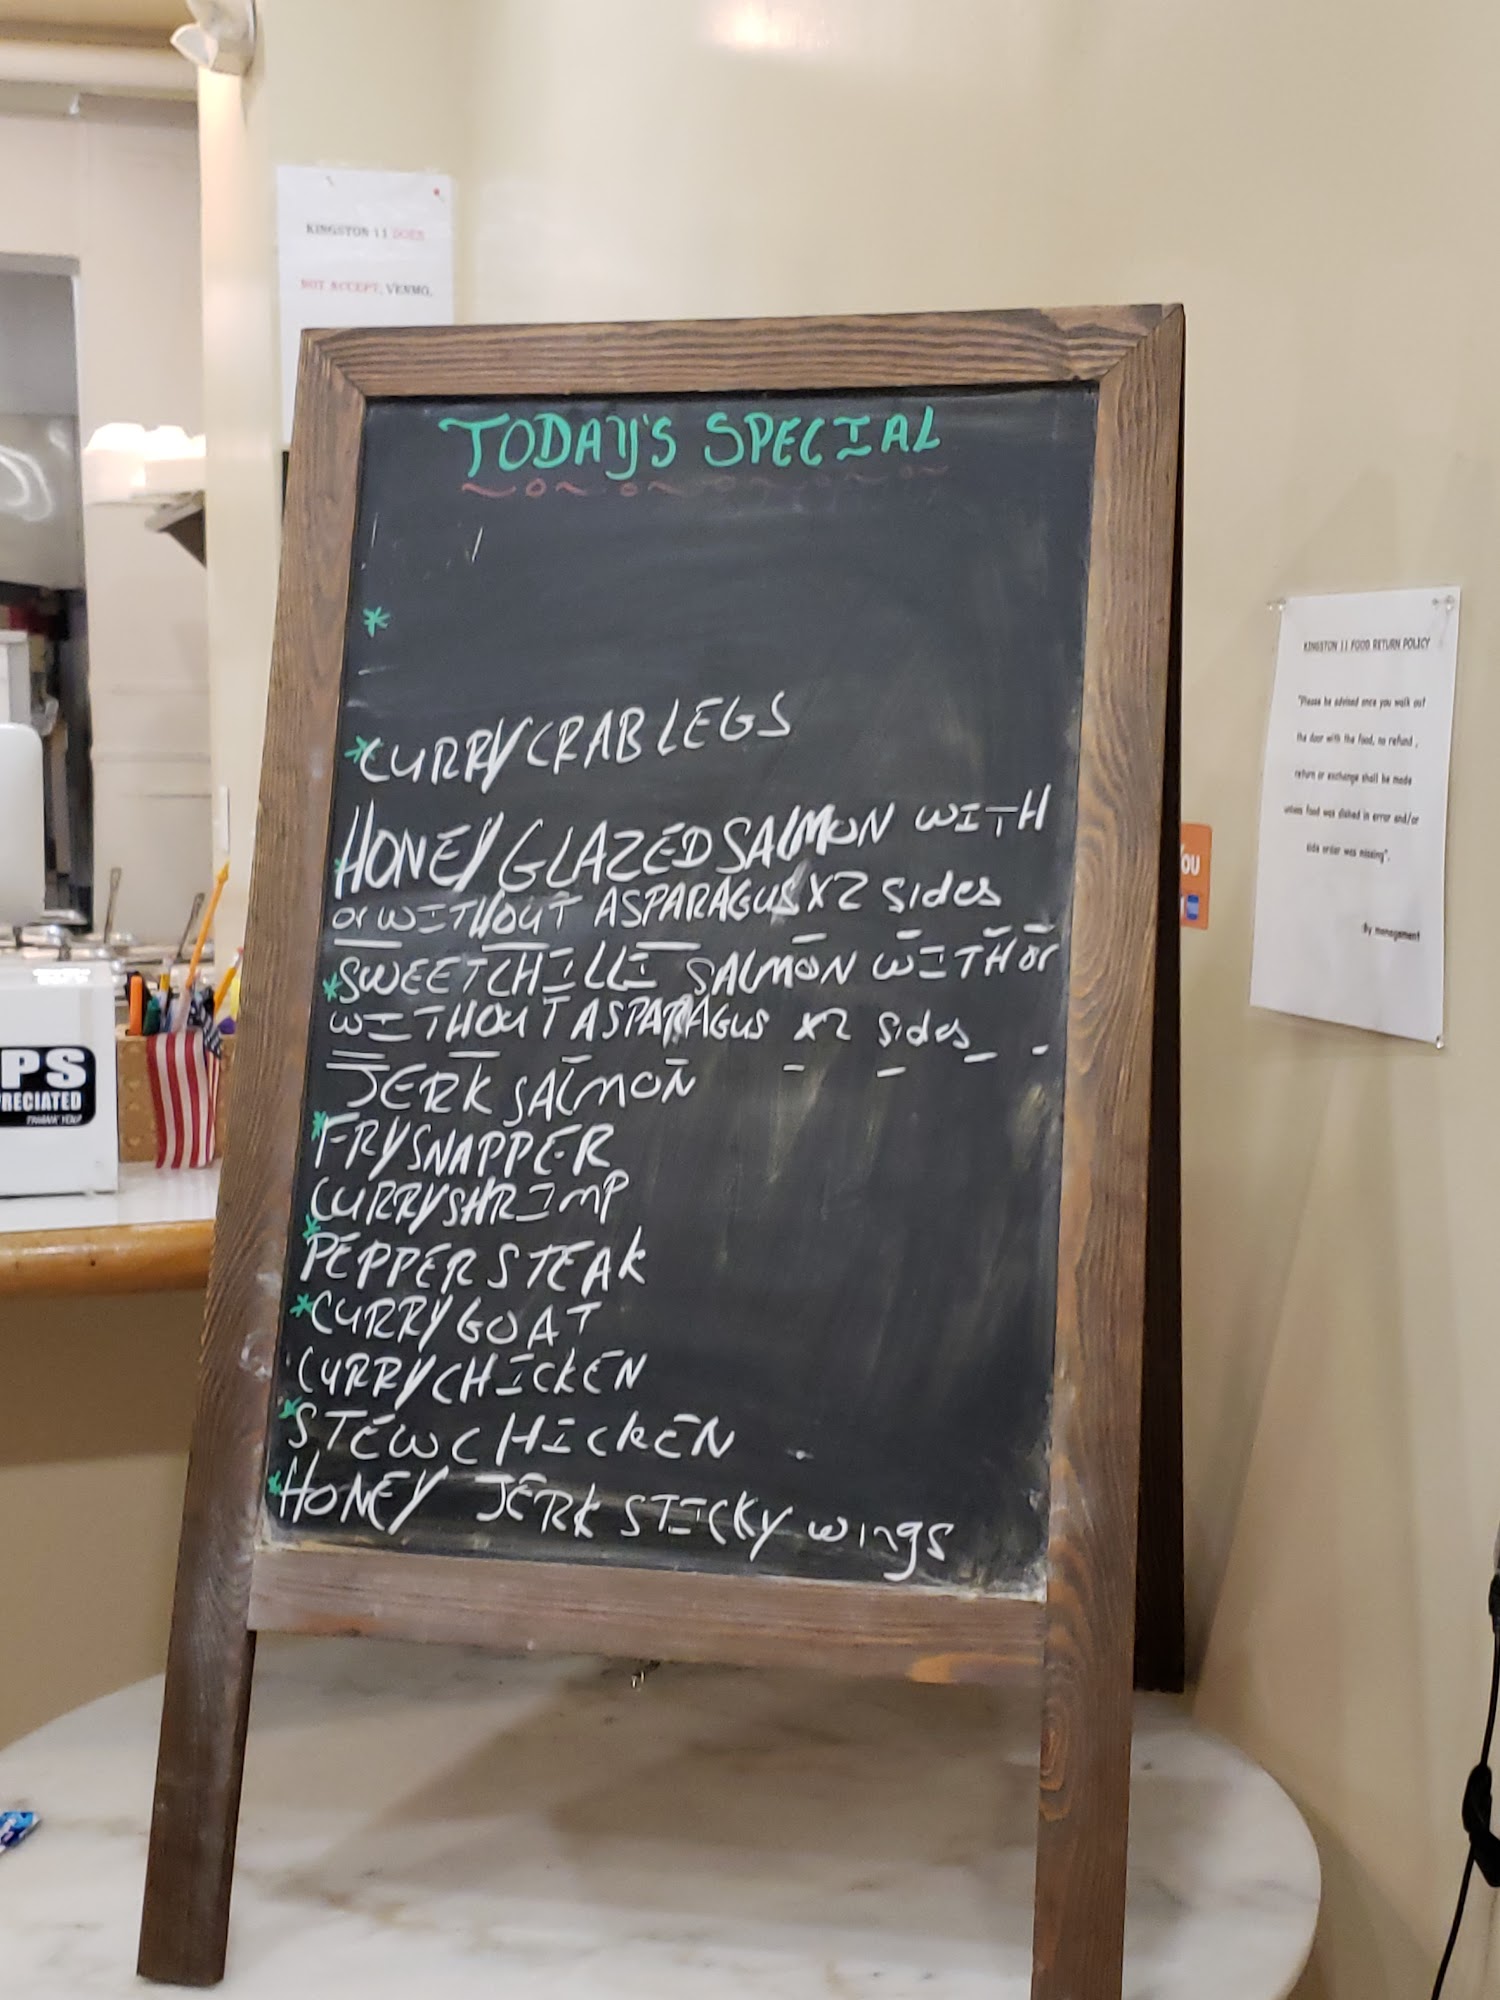 KINGSTON 11 DOES
NOT ACCEPT, VENMO,
TODAY'S SPECIAL
*
*CURRY CRAB LEGS
*HONEY GLAZED SALMON WITH
or WITHOUT ASPARAGUS X2 sides
*SWEET CHILLI SALMON WITH or
WITHOUT ASPARAGUS X2 sides
JERK SALMON
*FRY SNAPPER
CURRY SHRIMP
*PEPPER STEAK
*CURRY GOAT
CURRY CHICKEN
*STEW CHICKEN
*HONEY JERK STICKY wings
KINGSTON 11 FOOD RETURN POLICY
"Please be advised once you walk out
the door with the food, no refund,
return or exchange shall be made
unless food was dished in error and/or
side order was missing".
By management
YOU
PS
RECIATED
THANK YOU!